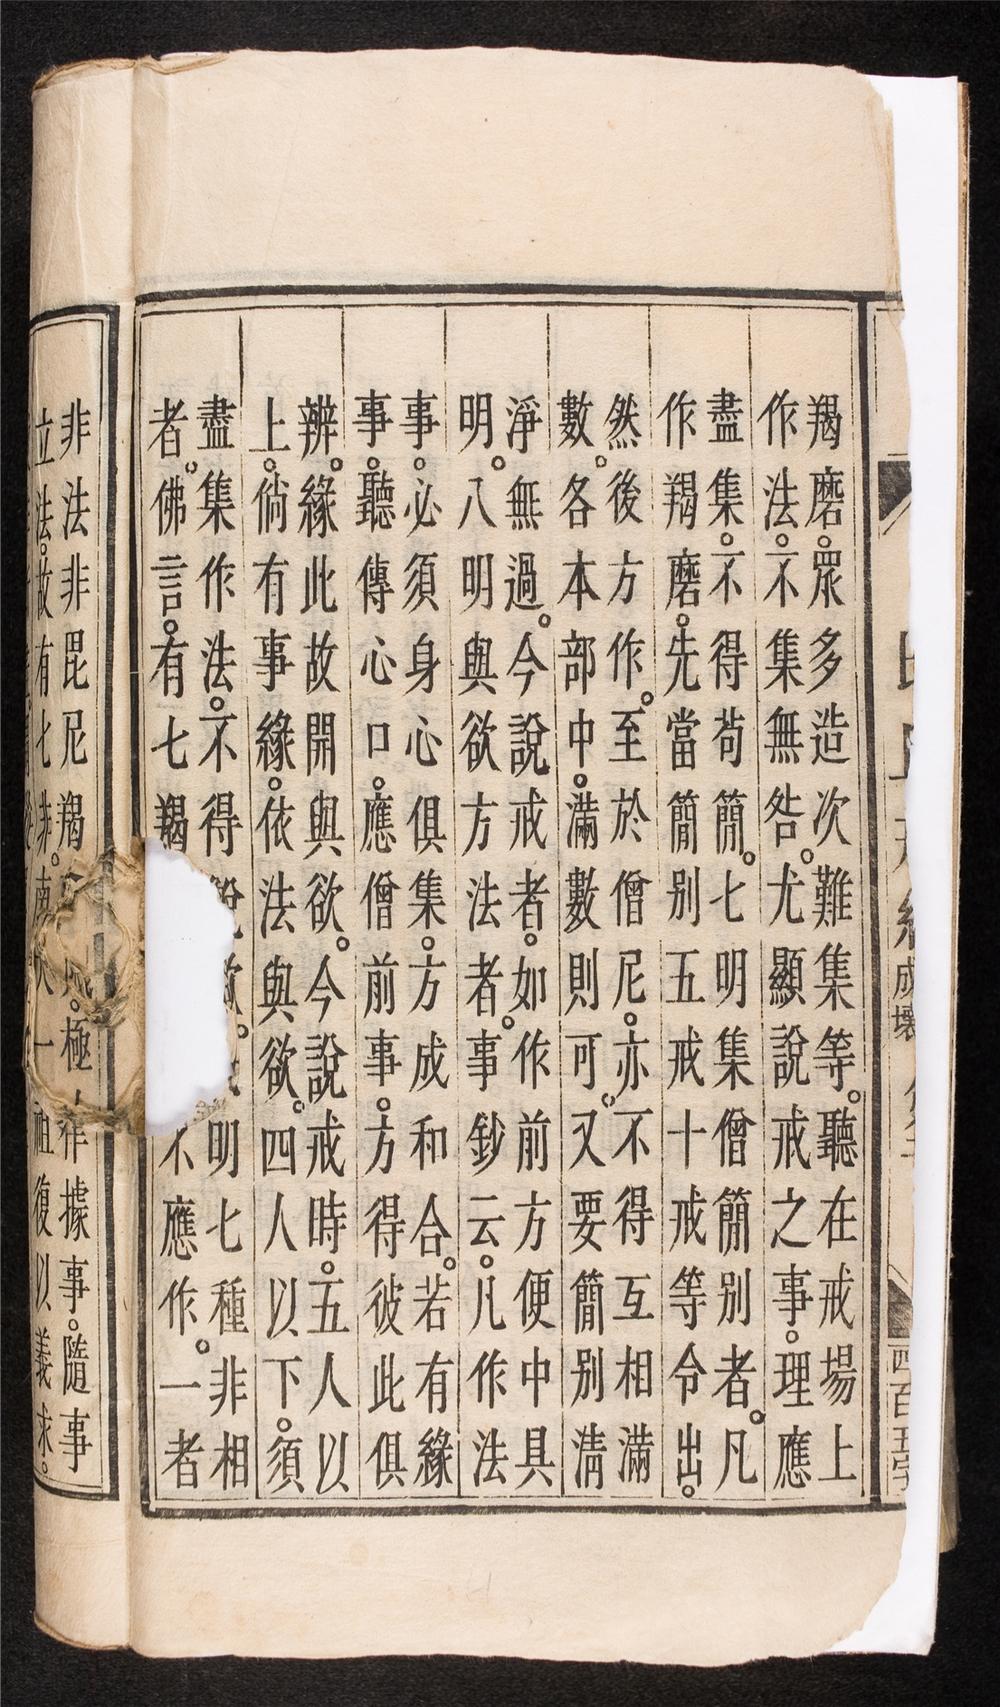 羯磨。眾多造次難集等。聽在戒場上
作法。不集無咎。尤顯說戒之事。理應
盡集。不得苟簡。七明集僧簡別者。凡
作羯磨。先當簡別五戒十戒等令出。
然後方作。至於僧尼。亦不得互相滿
數。各本部中。滿數則可。又要簡別清
淨無過。今說戒者。如作前方便中具
明。八明與欲方法者。事鈔云。凡作法
事。必須身心俱集。方成和合。若有緣
事。聽傳心口。應僧前事。方得彼此俱
辨。緣此故開與欲。今說戒時。五人以
上。倘有事緣。依法與欲。四人以下。須
盡集作法。不得說欲。明七種非相
者。佛言。有七羯不應作。一者
成壞
四百五字
非法非毘尼羯極作據事。隨事
立法。故有七非。南一祖復以義求。